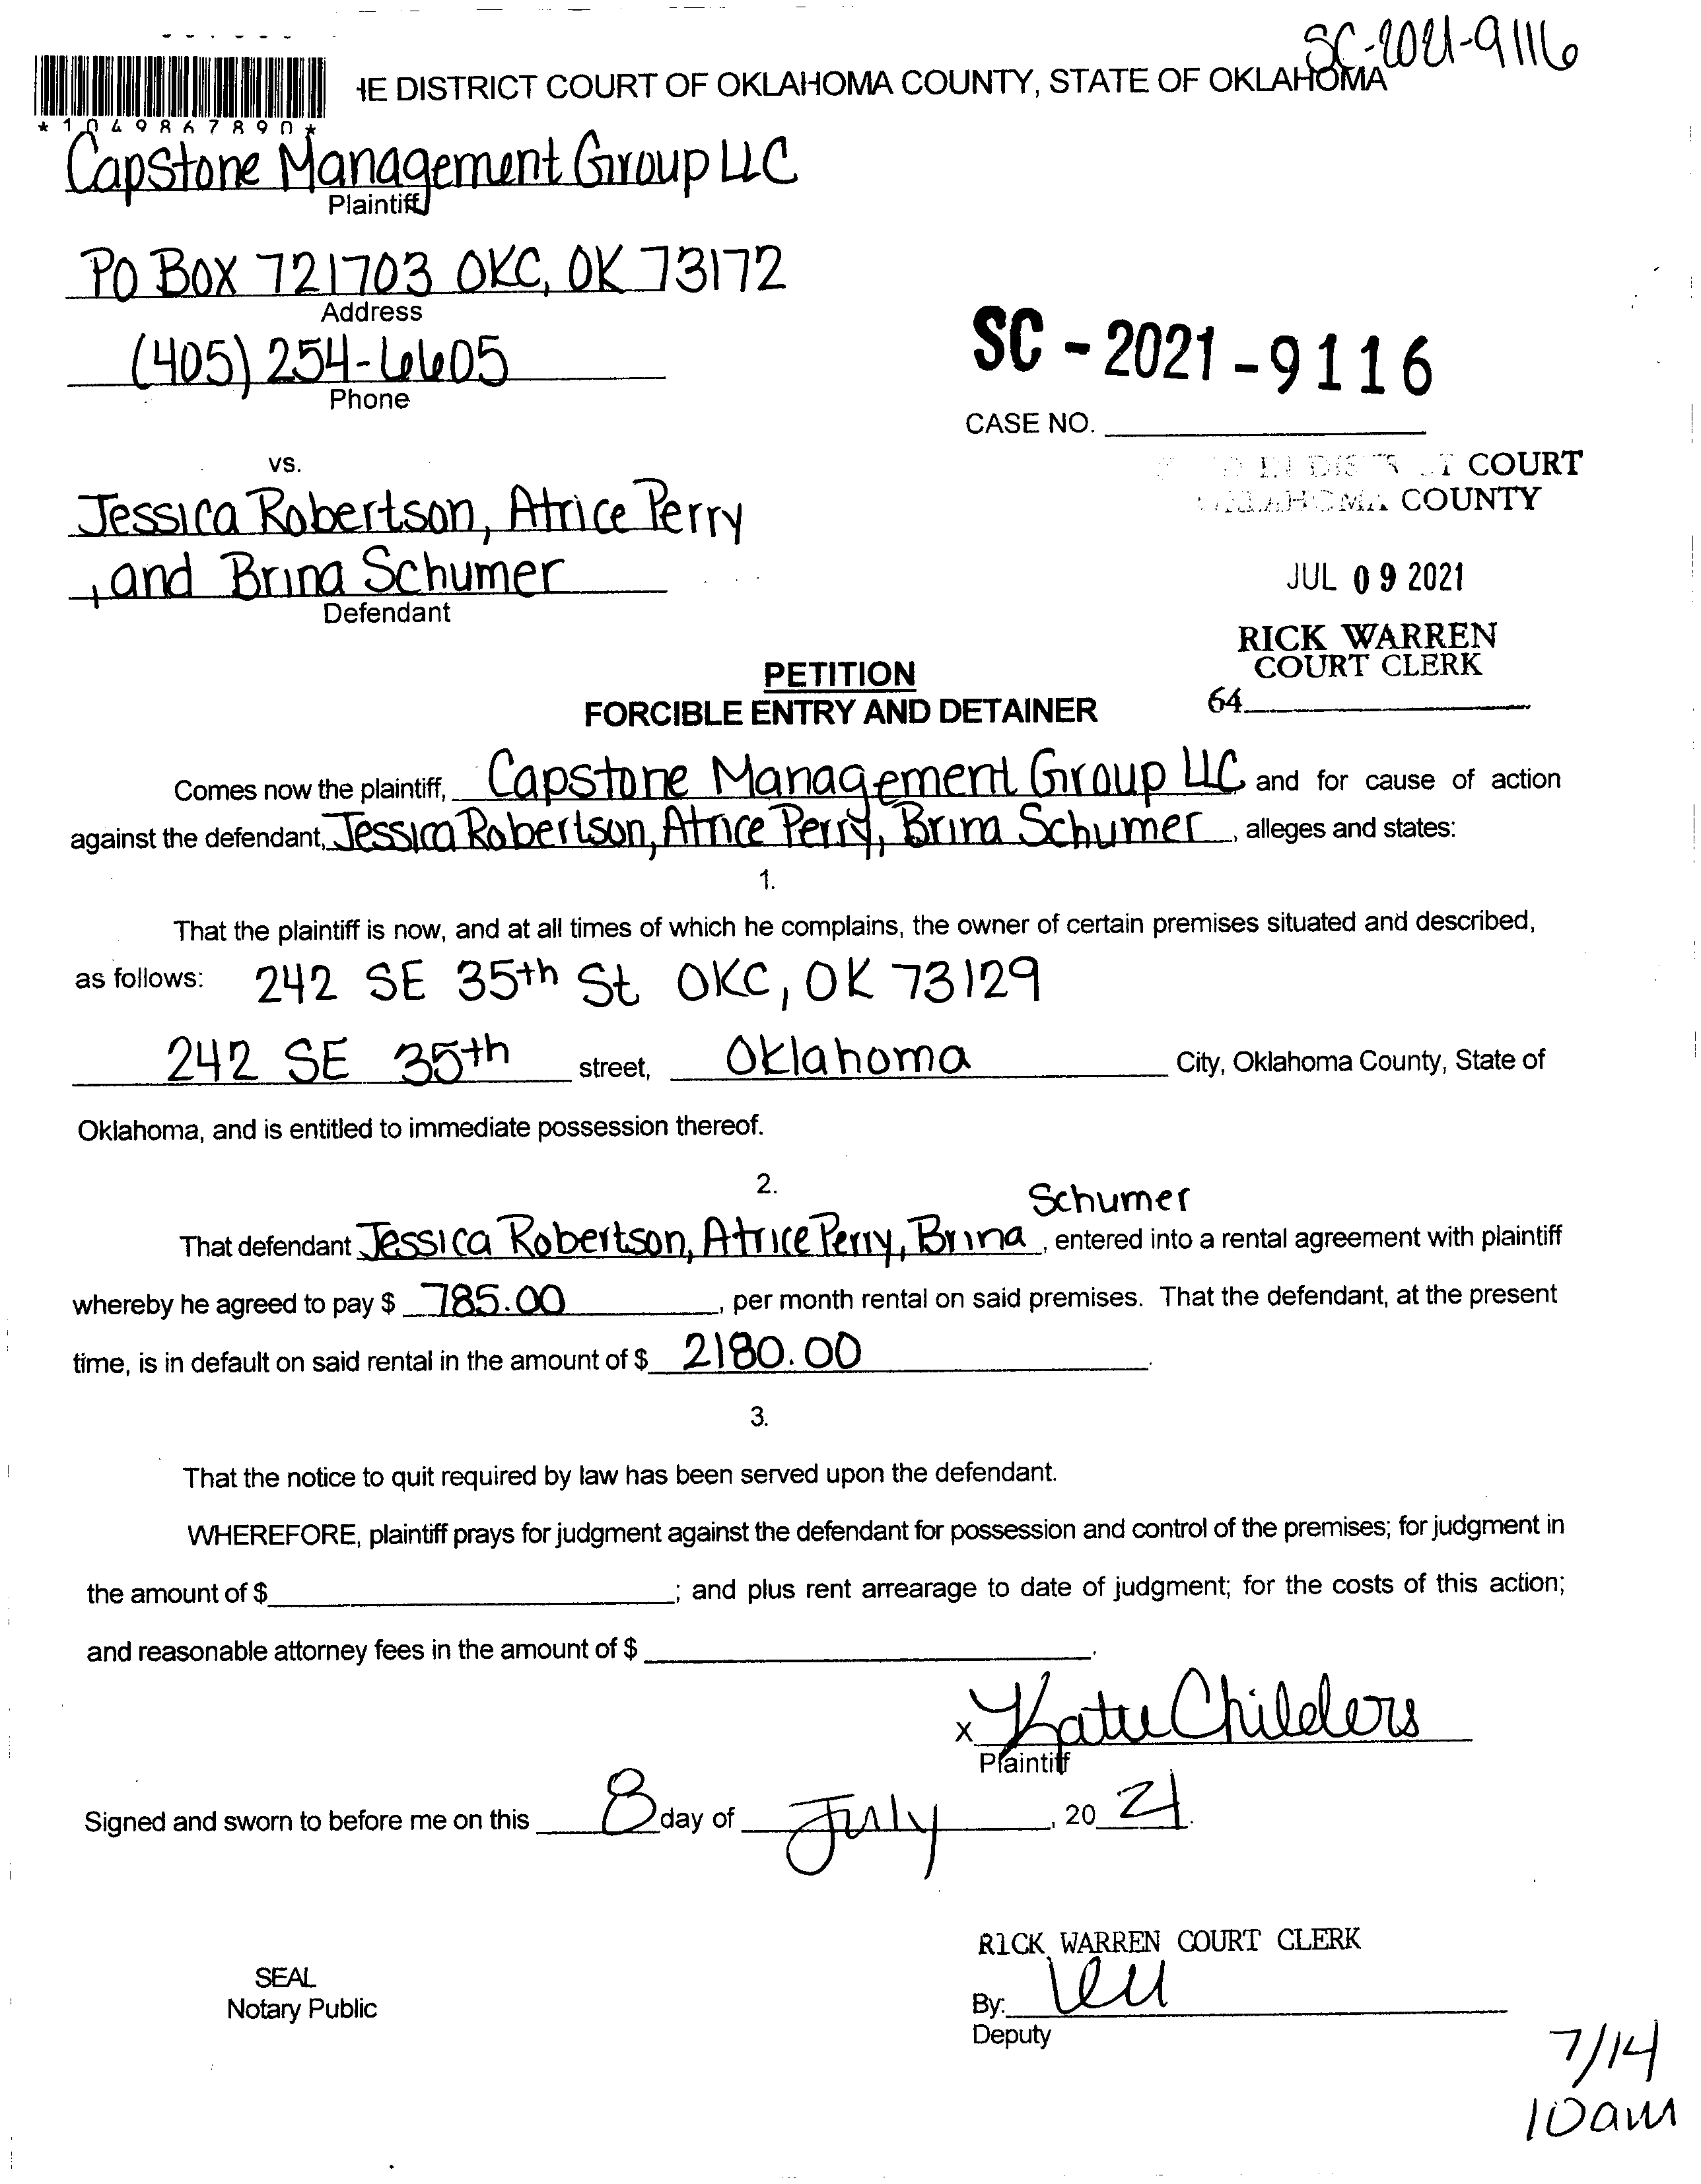 SC-2021-9116
*1049867890*
HE DISTRICT COURT OF OKLAHOMA COUNTY, STATE OF OKLAHOMA
Capstone Management Group LLC
Plaintiff
PO Box 721703 OKC, OK 73172
Address
(405) 254-6605
Phone
SC - 2021 - 9116
CASE NO.
vs.
COURT
COUNTY
Jessica Robertson, Atrice Perry
, and Brina Schumer
Defendant
JUL 09 2021
RICK WARREN
COURT CLERK
64
PETITION
FORCIBLE ENTRY AND DETAINER
Comes now the plaintiff, Capstone Management Group LLC and for cause of action
against the defendant, Jessica Robertson, Atrice Perry, Brina Schumer, alleges and states:
1.
That the plaintiff is now, and at all times of which he complains, the owner of certain premises situated and described,
as follows: 242 SE 35th St OKC, OK 73129
242 SE 35th street, Oklahoma City, Oklahoma County, State of
Oklahoma, and is entitled to immediate possession thereof.
2.
Schumer
That defendant Jessica Robertson, Atrice Perry, Brina, entered into a rental agreement with plaintiff
whereby he agreed to pay $ 785.00, per month rental on said premises. That the defendant, at the present
time, is in default on said rental in the amount of $ 2180.00.
3.
That the notice to quit required by law has been served upon the defendant.
WHEREFORE, plaintiff prays for judgment against the defendant for possession and control of the premises; for judgment in
the amount of $ ; and plus rent arrearage to date of judgment; for the costs of this action;
and reasonable attorney fees in the amount of $ .
x Katie Childers
Plaintiff
Signed and sworn to before me on this 8 day of July, 20 21.
RICK WARREN COURT CLERK
SEAL
Notary Public
By:
Deputy
7/14
10am